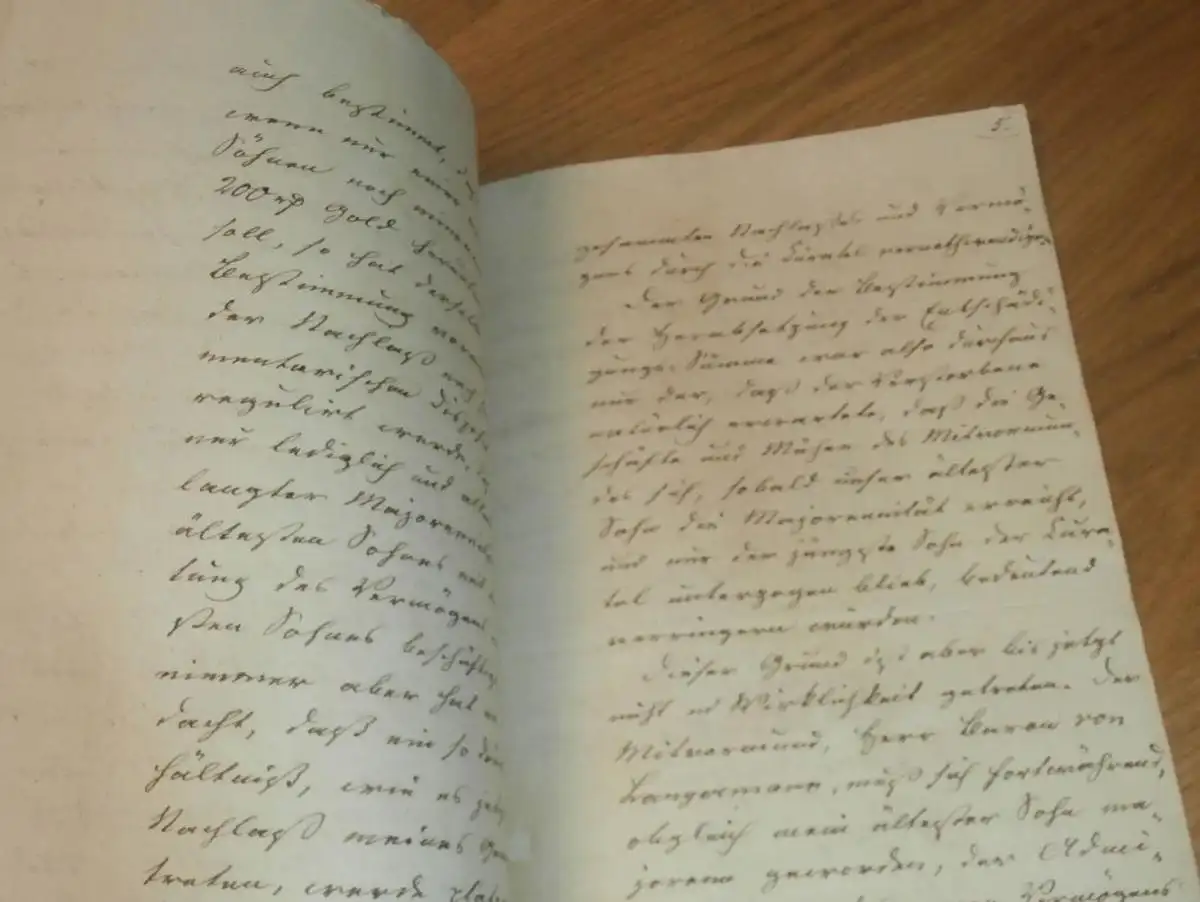 auch bestimmt,
wenn nur einer
Söhnen noch
200 rℓ Gold
soll, so hat
Bestimmung
der Nachlaß
mentarischen
regulirt werde,
nur lediglich und
langter
ältesten Sohnes
tung des Vermögens
sten Sohnes
nimmer aber hat
dacht, daß ein so
hältniß, wie es
Nachlaß meines
treten, werde
5.
gesammten Nachlaßes und Vermö-
gens durch die Curatel
Der Grund der Bestimmung
der Herabsetzung der Entschädi-
gungs-Summe war also durchaus
nur der, daß der Verstorbene
natürlich erwartete, daß die Ge-
schäfte und Mühen des Mitvormun-
des sich, sobald unser ältester
Sohn die Majorennität erreicht,
und nur der jüngste Sohn der Cura-
tel unterzogen blieb, bedeutend
verringern würden.
Dieser Grund ist aber bis jetzt
nicht in Wirklichkeit getreten. Der
Mitvormund, Herr Baron von
muß sich fortwährend,
obgleich mein ältester Sohn ma-
jorenn geworden, der Admi-
Vermögens